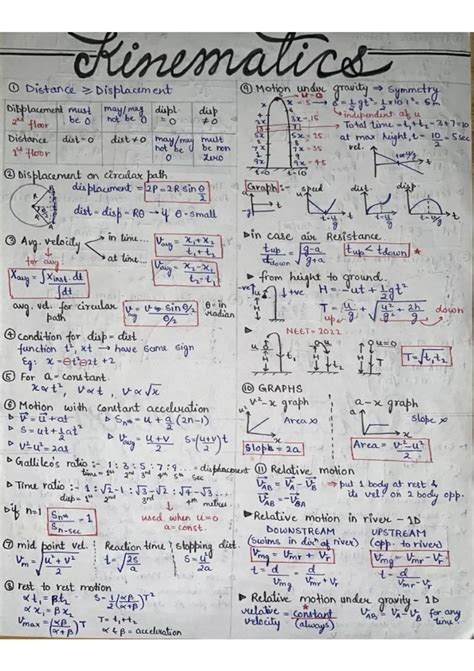 Kinematics
① Distance ≥ Displacement
Displacement must be 0 may/may not be 0 displ = 0 disp ≠ 0
2nd floor
Distance dist = 0 dist ≠ 0 may/may not be 0 must be non zero
1st floor
② Displacement on circular path
displacement = 2P = 2R sin θ/2
dist = disp = Rθ → if θ-small
③ Avg. velocity
in time... Vavg = x₁+x₂ / t₁+t₂
at time... Vavg = x₂-x₁ / t₂-t₁
for avg
Xavg = ∫Xinst. dt / ∫dt
avg. vel. for circular path
θ = in radian
④ condition for disp = dist
function t², xt → have same sign
Eg: x = t² 2t + 2
⑤ For a-constant
x ∝ t², v ∝ t, v ∝ √x
⑥ Motion with constant acceleration
v = u + at
Snth = u + a/2 (2n-1)
S = ut + 1/2 at²
Vavg = u+v / 2
S = (u+v / 2) t
v²-u² = 2as
Galileo's ratio :- 1 : 3 : 5 : 7 : 9 ... displacement
time = 1st 2nd 3rd 4th 5th sec
Time ratio :- 1 : √2-1 : √3-√2 : √4-√3 ...
displacement = 1st 2nd 3rd 4th
if n=1 Snth / Sn-sec = 1
used when u=0
a = const.
⑦ mid point vel.
Vm = √u²+v² / 2
Reaction time
t = √2S/a
stopping dist.
S = u² / 2a
⑧ rest to rest motion
αt₁ = βt₂
αx₁ = βx₂
S = 1/2 (αβ / α+β) T²
Vmax = (αβ / α+β) T
T = t₁+t₂
α & β = acceleration
⑨ Motion under gravity → Symmetry
u = 0
S = 1/2 gt² = 1/2 x 10 t² = 5m
independent of u
Total time = t₁+t₂ = 3+7 = 10
at max height, t = 10/2 = 5 sec
vel.
Graph :- sped dist disp
in case air Resistance.
tup / tdown = √g-a / g+a
tup < tdown
from height to ground.
H = -ut + 1/2 gt²
T = u/g + √u²/g² + 2h/g
up
down
NEET - 2022
u = 0
T = √t₁t₂
⑩ GRAPHS
v²-x graph
a-x graph
Slope x
Slope = 2a
Area = v²-u² / 2
⑪ Relative motion
VAB = VA - VB → put 1 body at rest & its vel on 2 body opp.
VAB = -VBA
Relative motion in river - 1D
DOWNSTREAM
(swims in dirn of river)
Vmg = Vmr + Vr
t = d / Vmg = d / Vmr + Vr
UPSTREAM
(opp. to river)
Vmg = Vmr - Vr
t = d / Vmr - Vr
Relative motion under gravity - 1D
relative velocity = constant (always)
VAB = VA - VB for any time